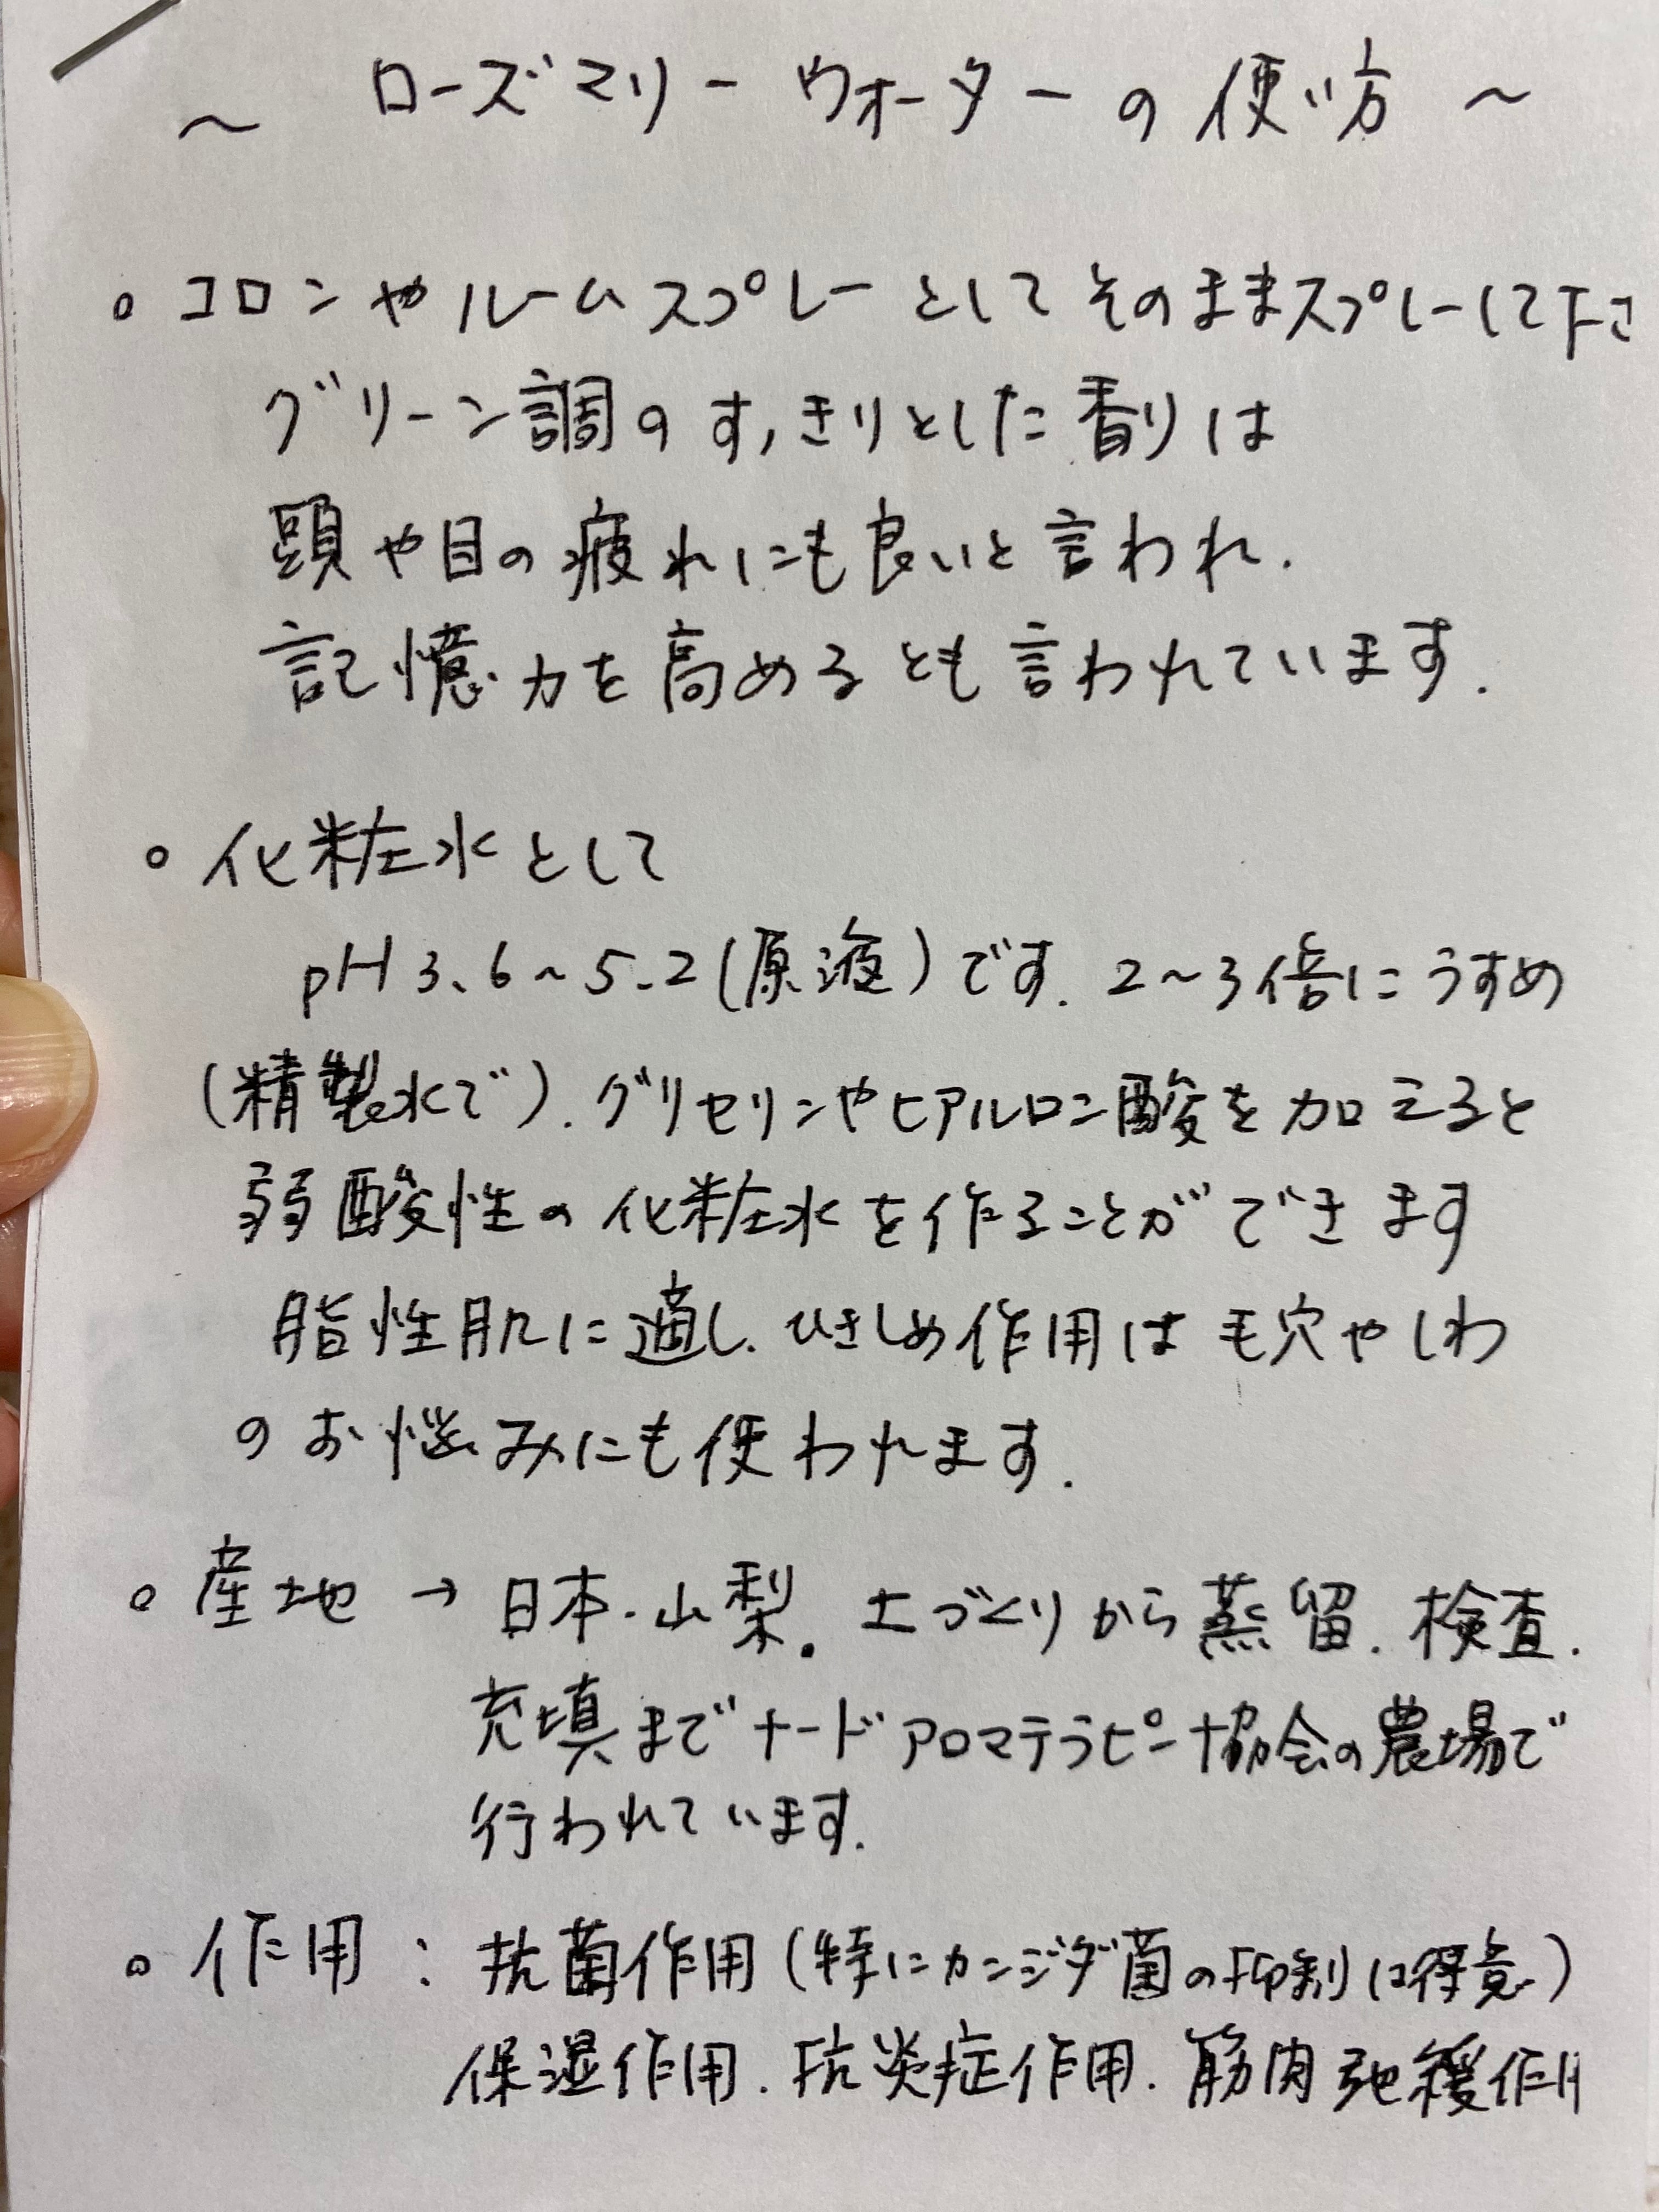 ～ ローズマリーウォーターの使い方 ～
。コロンやルームスプレーとしてそのままスプレーして下さ
グリーン調のすっきりとした香りは
頭や目の疲れにも良いと言われ.
記憶力を高めるとも言われています.
。化粧水として
pH 3.6～5.2(原液)です. 2～3倍にうすめ
(精製水で).グリセリンやヒアルロン酸を加えると
弱酸性の化粧水を作ることができます
脂性肌に適し.ひきしめ作用は毛穴やしわ
のお悩みにも使われます.
。産地 → 日本.山梨。土づくりから蒸留.検査.
充填までナードアロマテラピー協会の農場で
行われています.
。作用：抗菌作用(特にカンジダ菌の抑制は得意)
保湿作用.抗炎症作用.筋肉弛緩作用